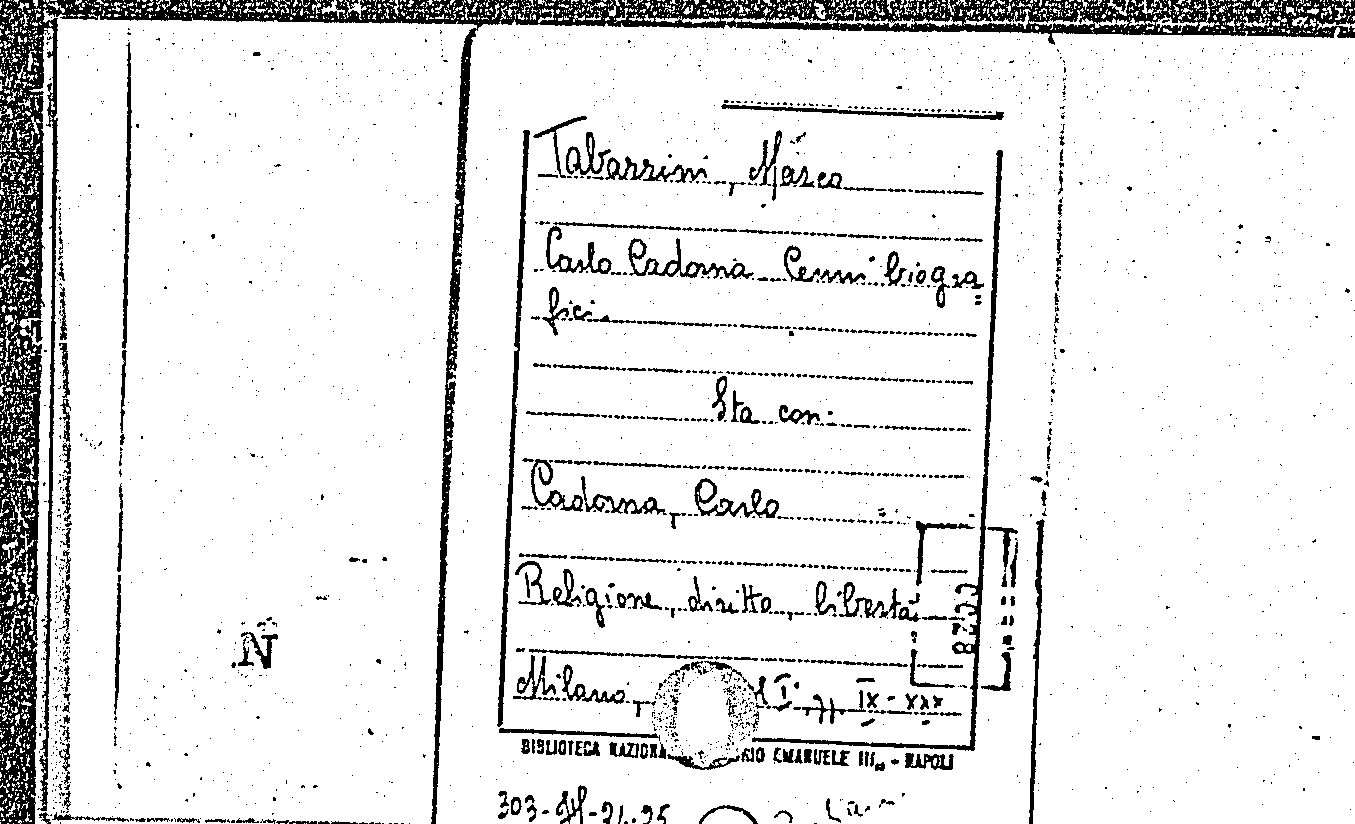 Tabarrini, Marco
Carlo Cadorna Cenni biogra=
fici.
Sta con:
Cadorna, Carlo
Religione, diritto, libertà
N
Milano, I., IX-XXX
BIBLIOTECA NAZIONA RIO EMANUELE III - NAPOLI
303-